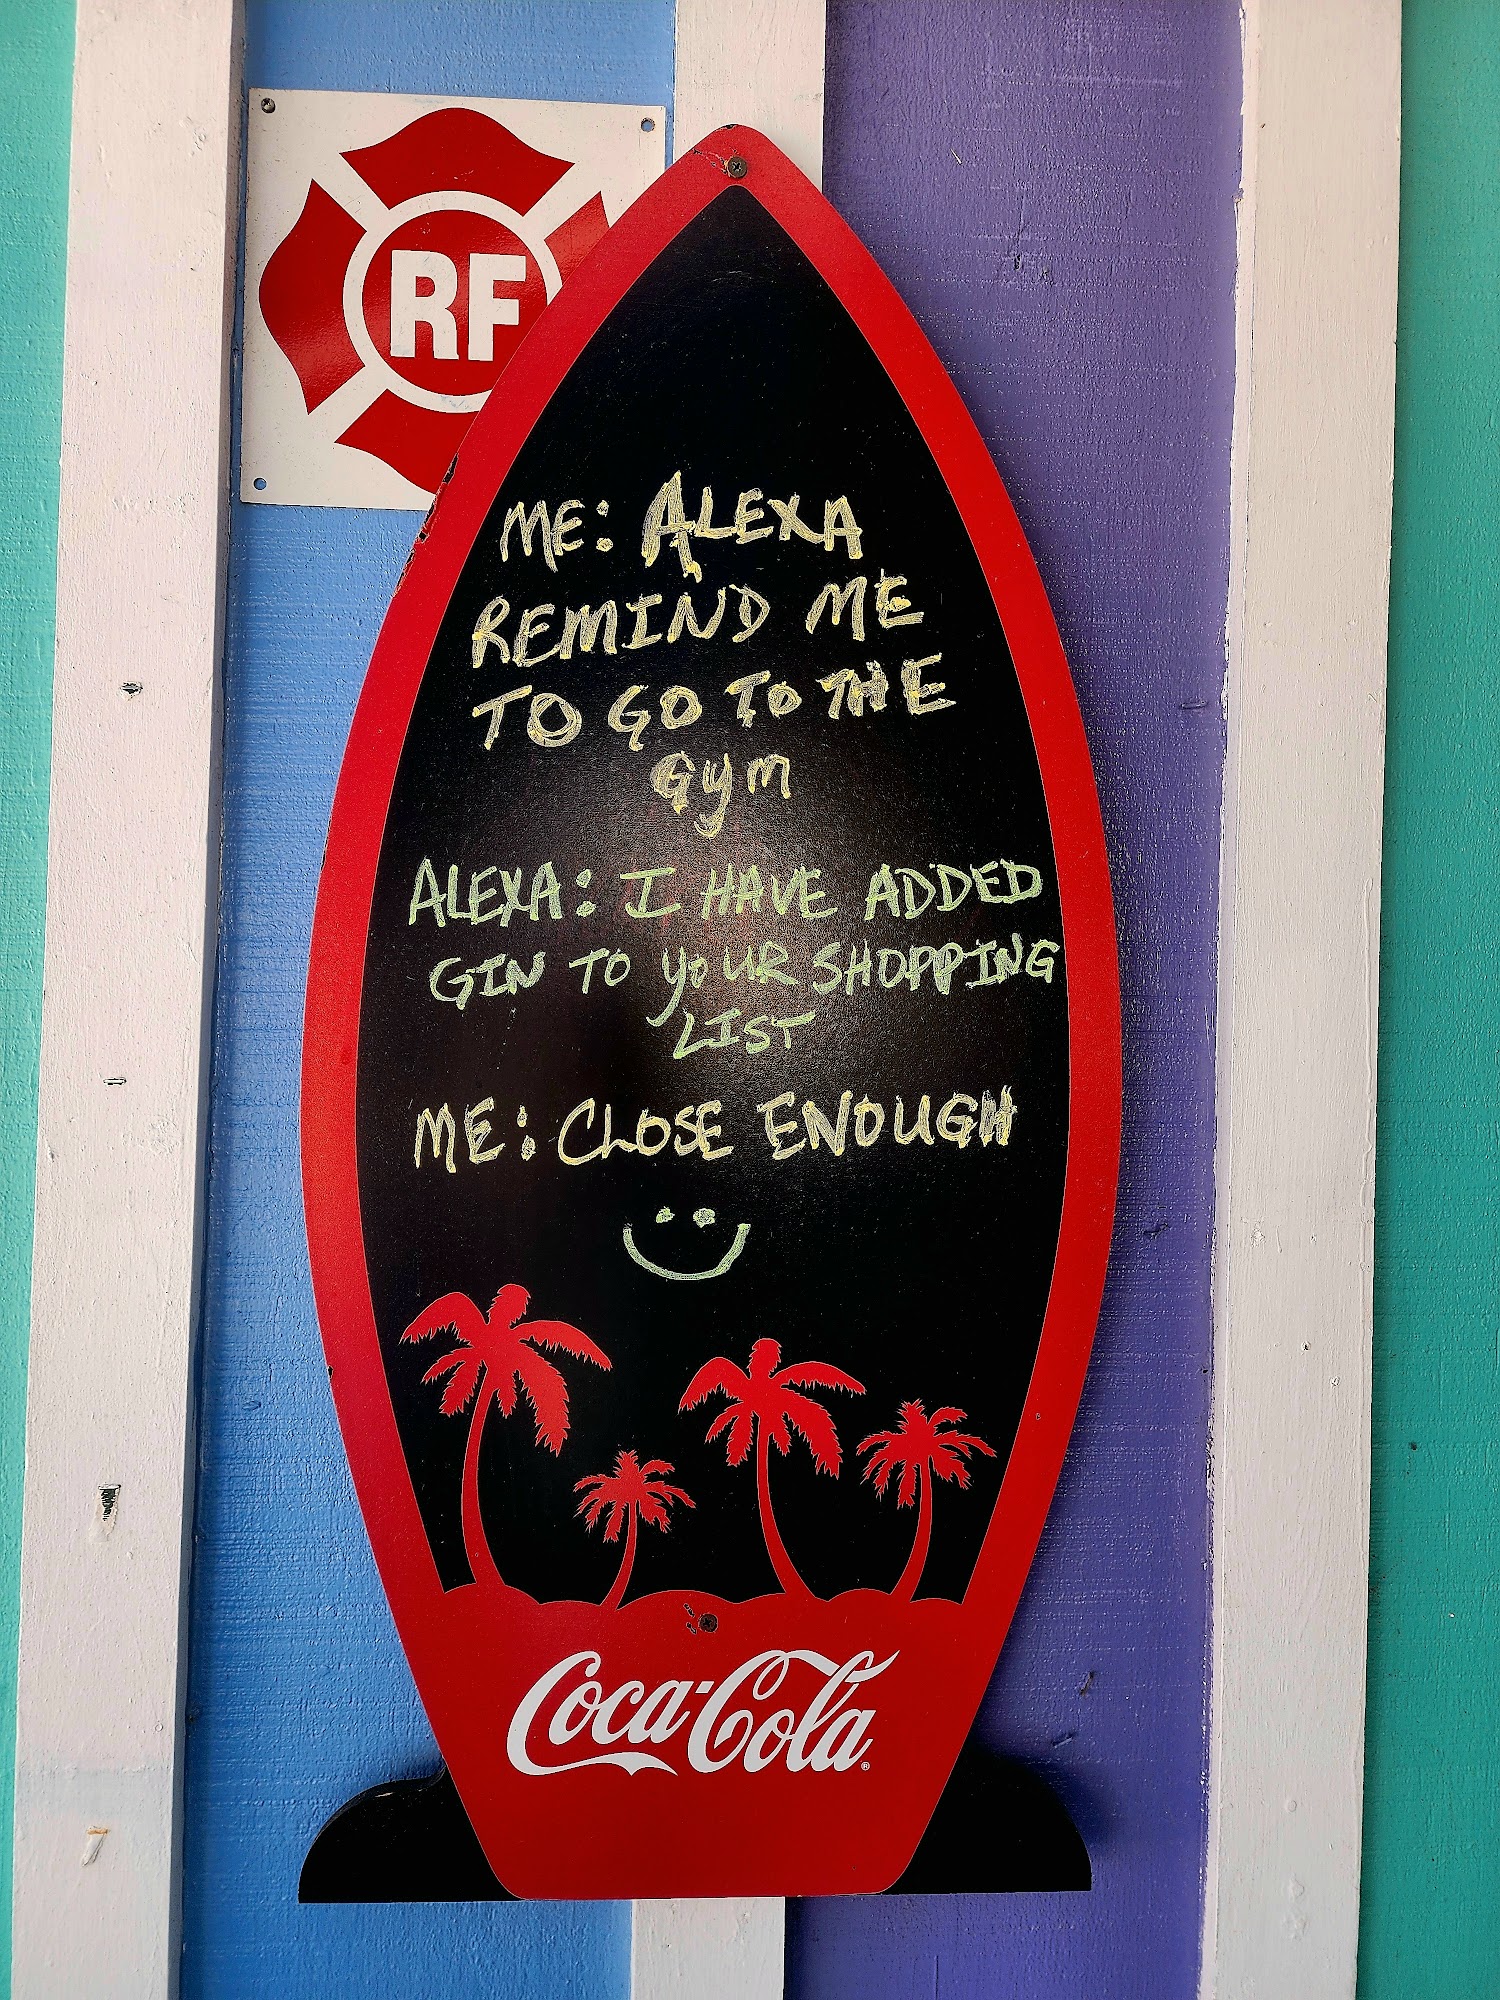 RF
ME: ALEXA
REMIND ME
TO GO TO THE
GYM
ALEXA: I HAVE ADDED
GIN TO YOUR SHOPPING
LIST
ME: CLOSE ENOUGH
Coca-Cola®